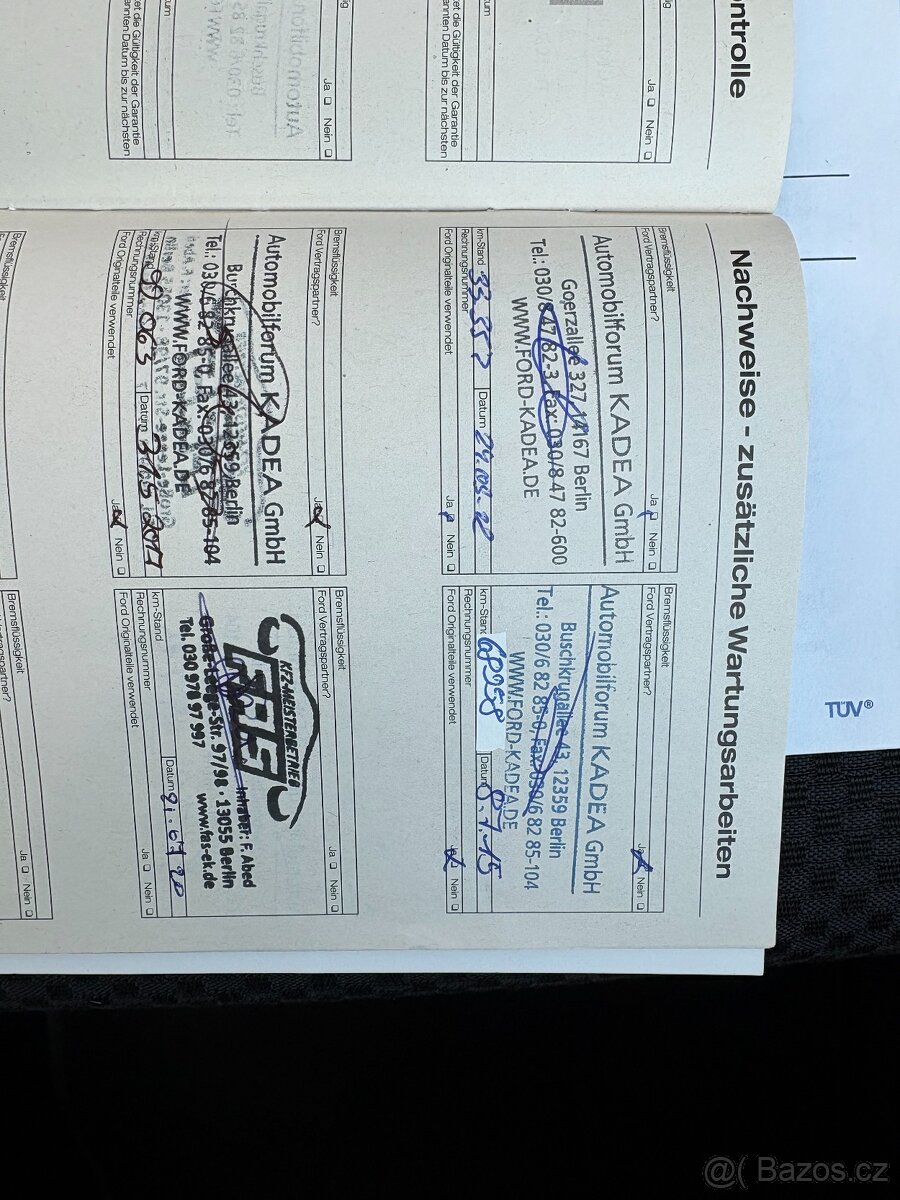 ontrolle
Ja ❑ Nein ❑
et die Gültigkeit der Garantie
annten Datum bis zur nächsten
Ja ❑ Nein ❑
et die Gültigkeit der Garantie
annten Datum bis zur nächsten
Nachweise - zusätzliche Wartungsarbeiten
Bremsflüssigkeit
Ford Vertragspartner? Ja ❑ Nein ❑
Automobilforum KADEA GmbH
Goerzallee 327, 14167 Berlin
Tel.: 030/8 47 82-3 Fax: 030/8 47 82-600
WWW.FORD-KADEA.DE
km-Stand 33 357 Datum
Rechnungsnummer
Ford Originalteile verwendet Ja ❑ Nein ❑
Bremsflüssigkeit
Ford Vertragspartner? Ja ❑ Nein ❑
Automobilforum KADEA GmbH
Buschkrugallee 43, 12359 Berlin
Tel.: 030/6 82 85-0, Fax: 030/6 82 85-104
WWW.FORD-KADEA.DE
km-Stand 68958 Datum 8.7.15
Rechnungsnummer
Ford Originalteile verwendet Ja ❑ Nein ❑
Bremsflüssigkeit
Ford Vertragspartner? Ja ❑ Nein ❑
Automobilforum KADEA GmbH
Buschkrugallee 43, 12359 Berlin
Tel.: 030/6 82 85-0, Fax: 030/6 82 85-104
WWW.FORD-KADEA.DE
km-Stand 90 063 Datum
Rechnungsnummer
Ford Originalteile verwendet Ja ❑ Nein ❑
Bremsflüssigkeit
Ford Vertragspartner? Ja ❑ Nein ❑
KFZ-MEISTERBETRIEB
Inhaber: F. Abed
Große-Leege-Str. 97/98 . 13055 Berlin
Tel. 030 978 97 997 www.fas-ek.de
km-Stand Datum
Rechnungsnummer
Ford Originalteile verwendet Ja ❑ Nein ❑
Bremsflüssigkeit
Bremsflüssigkeit
Ja ❑ Nein ❑
TÜV®
@( Bazos.cz